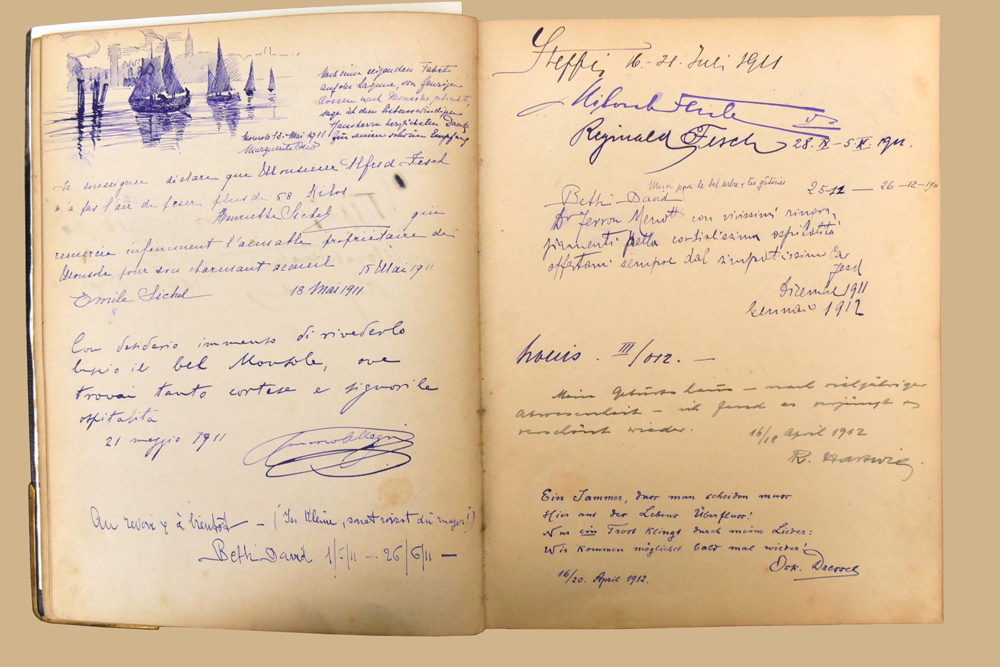 Nach einer reizenden Fahrt
auf der Lagune, von feurigen
Rossen nach Monsole gebracht,
sage ich dem liebenswürdigen
Hausherrn herzlichsten Dank
für seinen schönen Empfang
Monsole 12. Mai 1911
Marguerite
Je soussignée, déclare que Monsieur Alfred Fesch
n'a pas l'air de peser plus de 58 Kilos
Henriette Sichel
qui
remercie infiniment l'aimable propriétaire de
Monsole pour son charmant accueil 15 Mai 1911
Emile Sichel 18 Mai 1911
Con desiderio immenso di rivederlo
lascio il bel Monsole, ove
trovai tanto cortese e signorile
ospitalità
21 maggio 1911
Au revoir y à bientôt — (In Kleine, sonst reisst du mager!)
Beth David 1/5/11 — 26/6/11 —
Steffi 16.-21. Juli 1911
Reginald Fesch 28. IX - 5 XI. 1911.
Merci pour le bel arbre y tes gâteries
Beth David 25-12 — 26-12-1911
Dr Ferron Menotti con vivissimi rin
per la cortesissima ospitalità
offertami sempre dal simpaticissimo Cav
Fesch
Dicembre 1911
Gennaio 1912
Louis. III/912. —
Mein Geburtshaus — nach vieljähriger
Abwesenheit — ich fand es verjüngt es
verschönt wieder.
16/18 April 1912
R. Hartwig
Ein Jammer, dass man scheiden muss
Hier aus der Lebens Überfluss!
Nur ein Trost klingt durch meine Lieder:
Wir kommen möglichst bald mal wieder!
Osk. Dressel
16/20. April 1912.